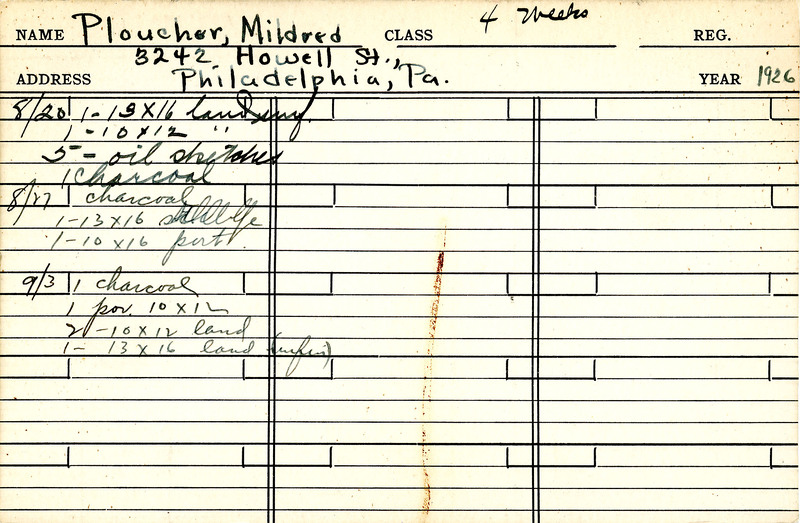 NAME Ploucher, Mildred CLASS 4 weeks REG.
3242 Howell St.,
ADDRESS Philadelphia, Pa. YEAR 1926
8/20 1-13x16 land
1-10x12 "
5- oil sketches
1 charcoal
8/27 charcoal
1-13x16 still life
1-10x16 port.
9/3 1 charcoal
1 por. 10x12
2-10x12 land
1- 13x16 land (unfin)